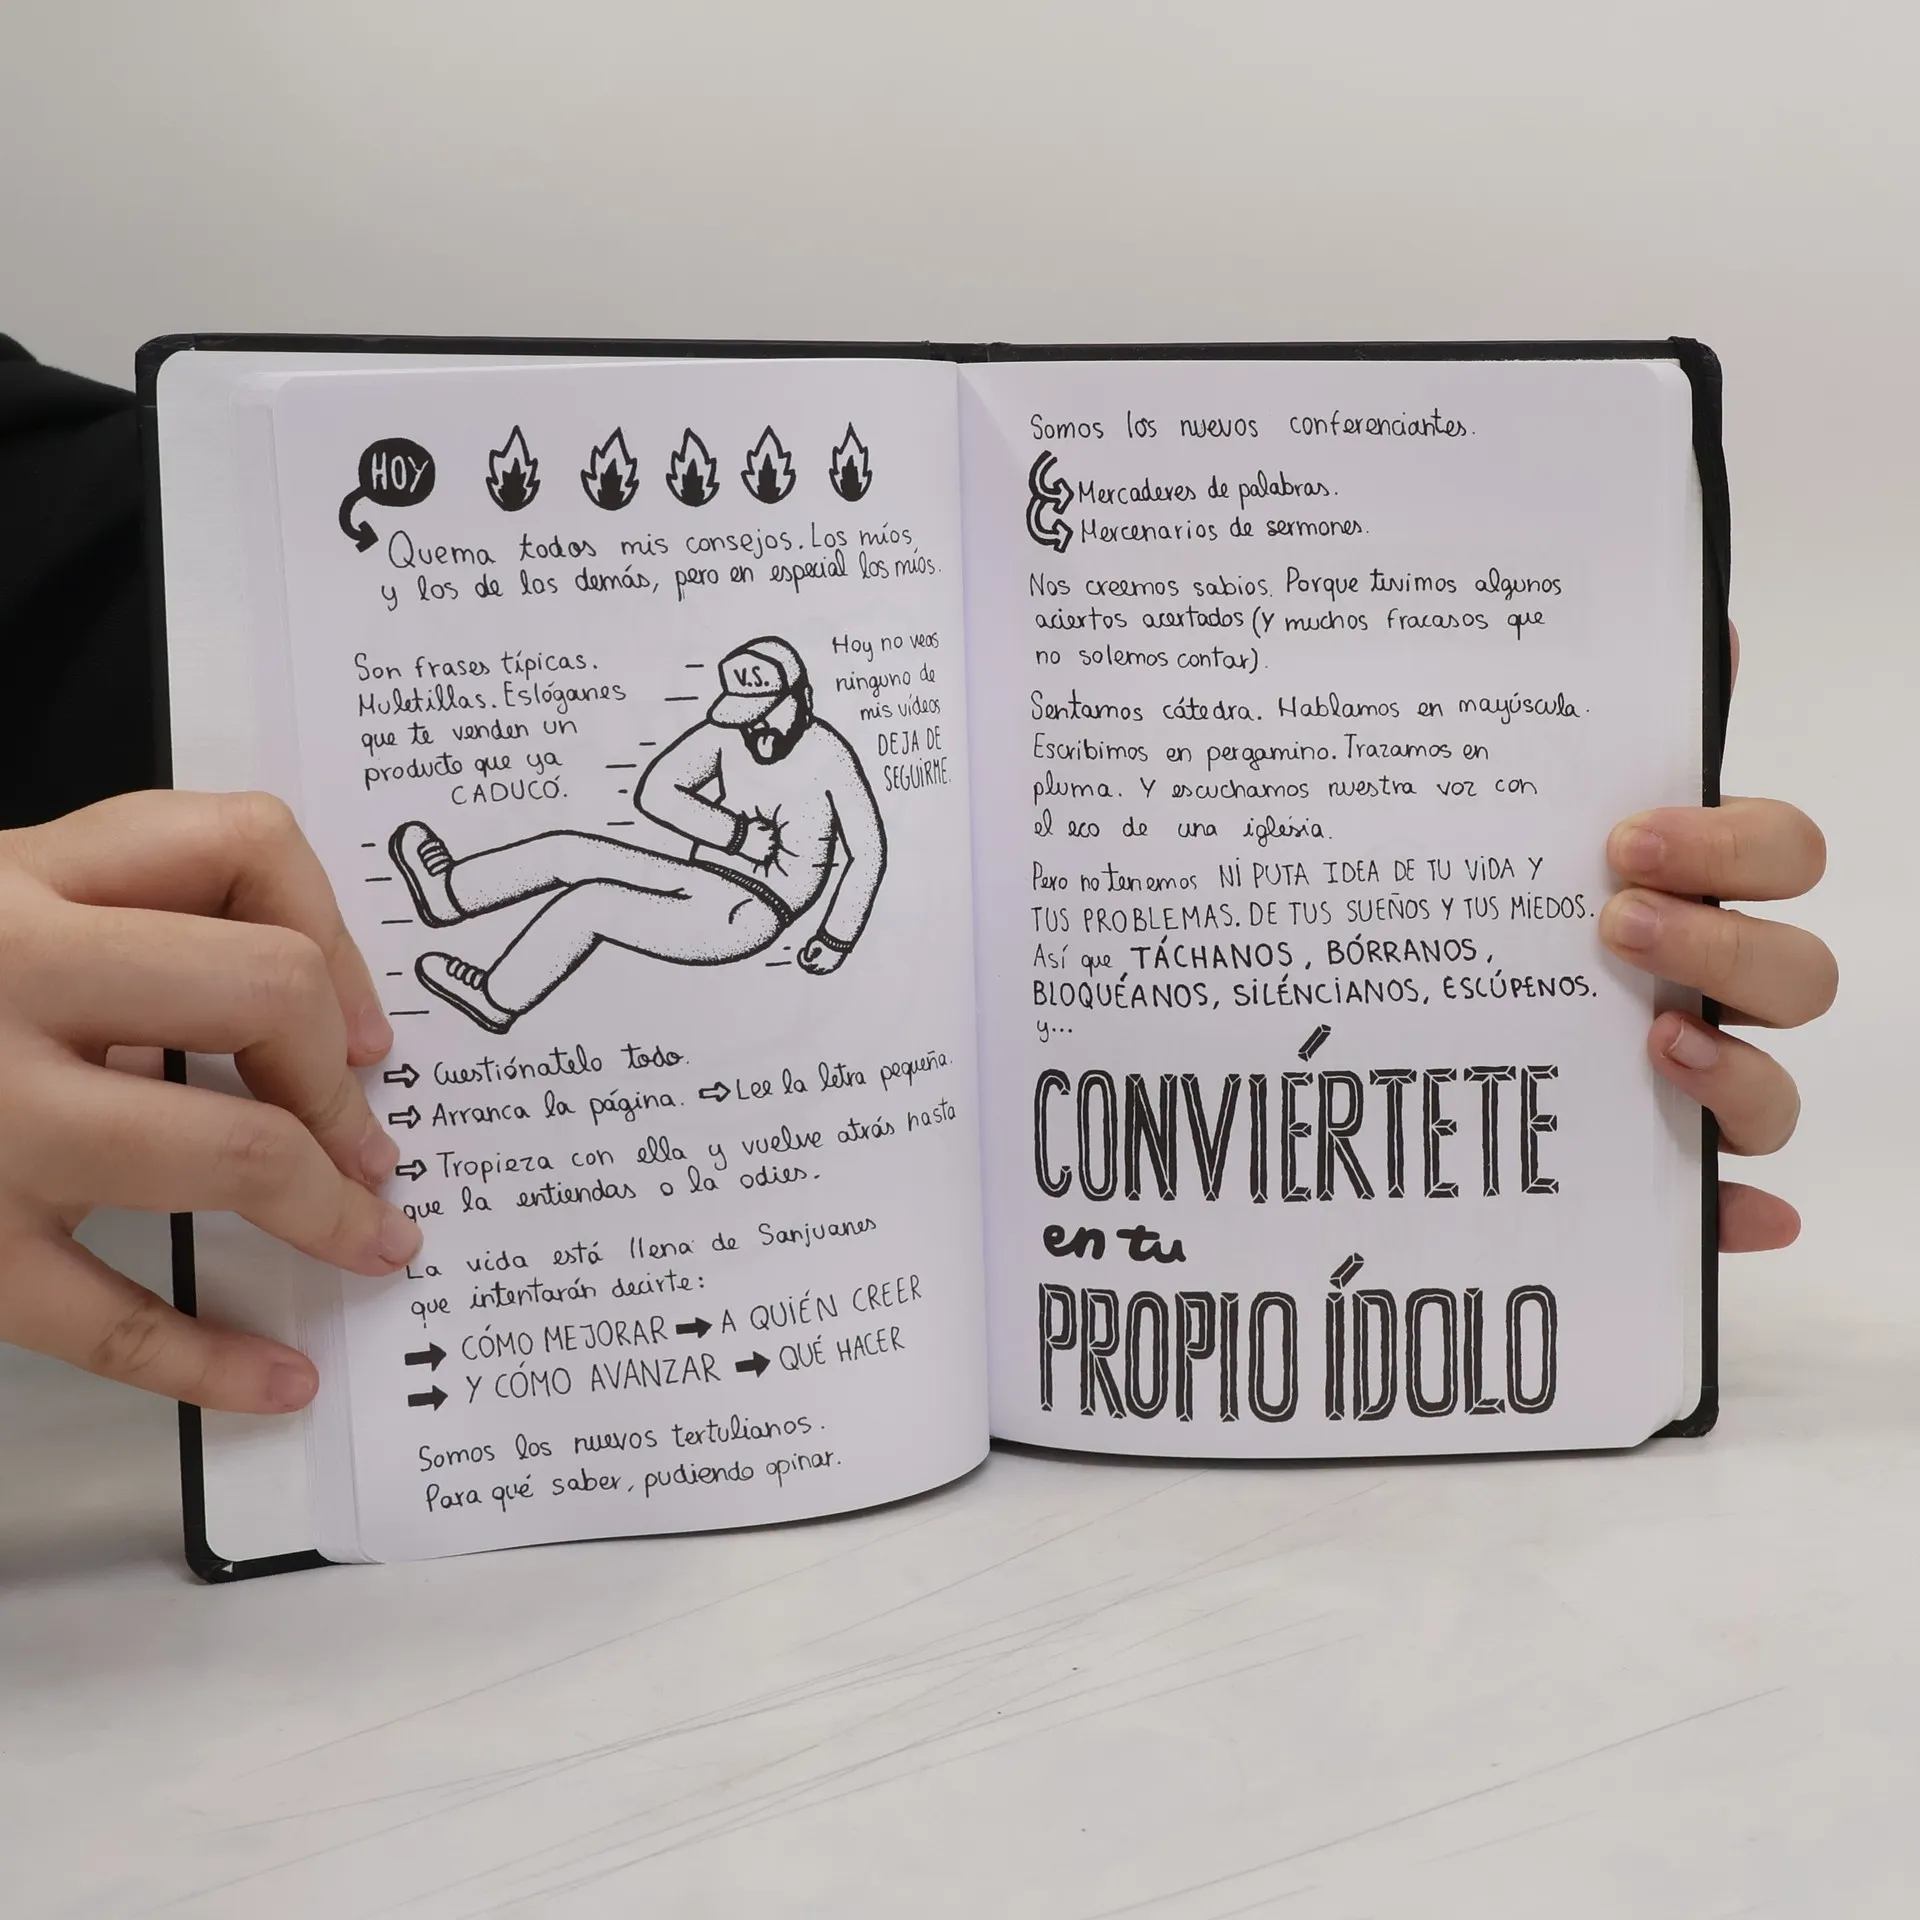 HOY
Quema todos mis consejos. Los míos
y los de los demás, pero en especial los míos.
Son frases típicas.
Muletillas. Eslóganes
que te venden un
producto que ya
CADUCÓ.
V.S.
Hoy no veas
ninguno de
mis vídeos
DEJA DE
SEGUIRME.
Cuestiónatelo todo.
Arranca la página. Lee la letra pequeña.
Tropieza con ella y vuelve atrás hasta
que la entiendas o la odies.
La vida está llena de Sanjuanes
que intentarán decirte:
CÓMO MEJORAR A QUIÉN CREER
Y CÓMO AVANZAR QUÉ HACER
Somos los nuevos tertulianos.
Para qué saber, pudiendo opinar.
Somos los nuevos conferenciantes.
Mercaderes de palabras.
Mercenarios de sermones.
Nos creemos sabios. Porque tuvimos algunos
aciertos acertados (y muchos fracasos que
no solemos contar).
Sentamos cátedra. Hablamos en mayúscula.
Escribimos en pergamino. Trazamos en
pluma. Y escuchamos nuestra voz con
el eco de una iglesia.
Pero no tenemos NI PUTA IDEA DE TU VIDA Y
TUS PROBLEMAS. DE TUS SUEÑOS Y TUS MIEDOS.
Así que TÁCHANOS, BÓRRANOS,
BLOQUÉANOS, SILÉNCIANOS, ESCÚPENOS.
y...
CONVIÉRTETE
en tu
PROPIO ÍDOLO